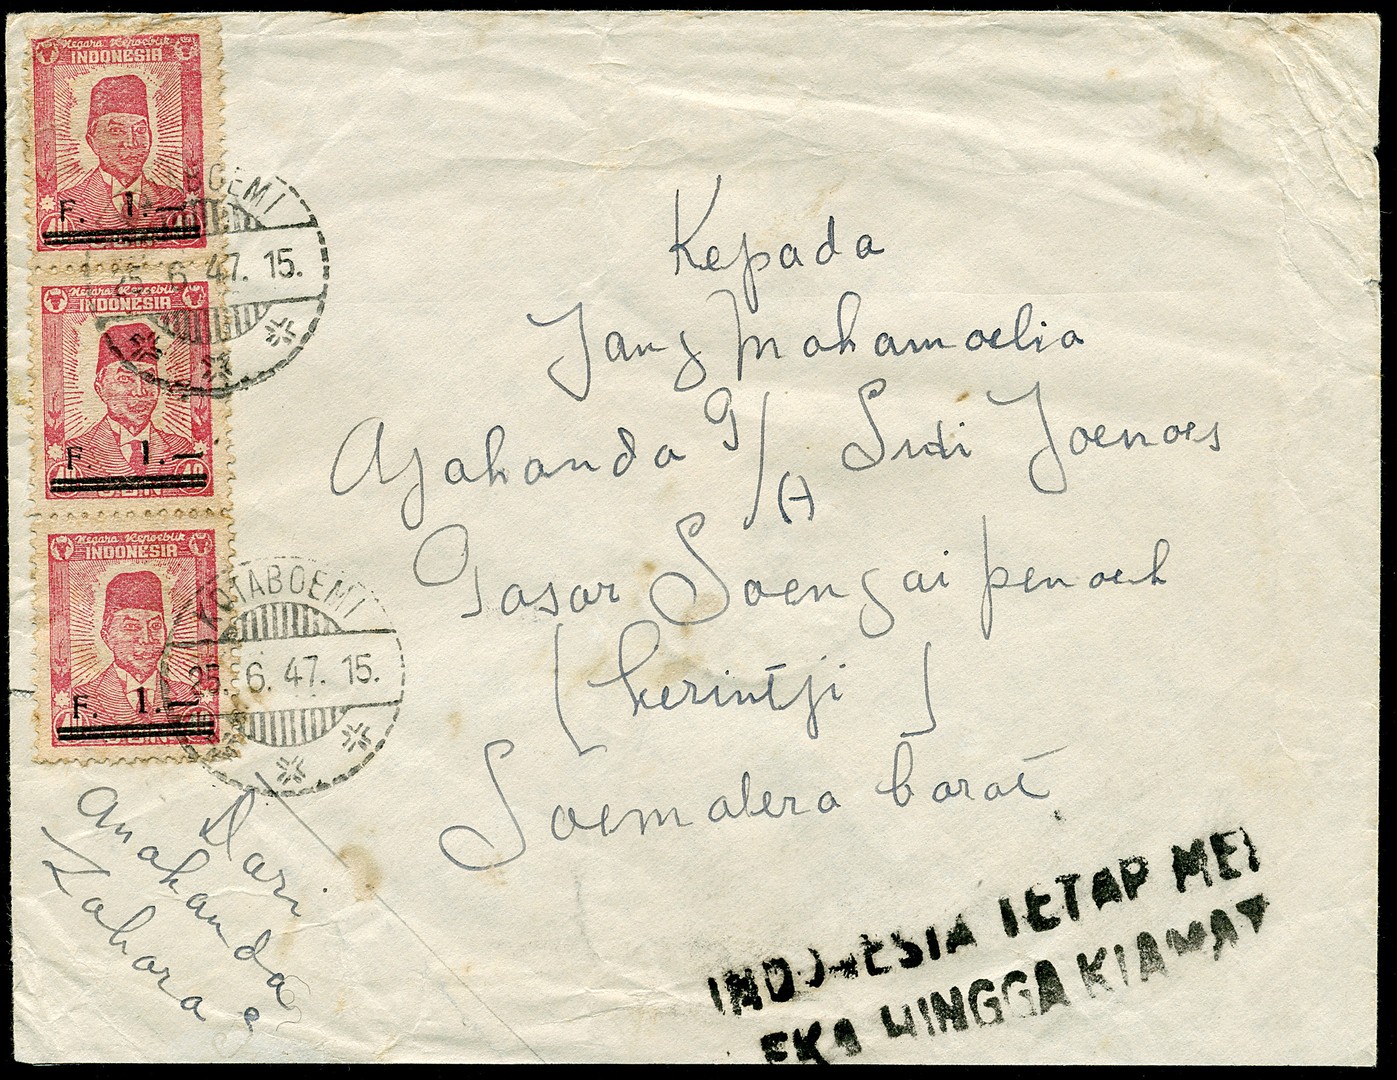 Negara Repoeblik
INDONESIA
F. 1.—
40 40
SEN
KOTABOEMI
25. 6. 47. 15.
Negara Repoeblik
INDONESIA
F. 1.—
40 40
SEN
Negara Repoeblik
INDONESIA
F. 1.—
40 40
SEN
KOTABOEMI
25. 6. 47. 15.
Kepada
Jang Mohamoelia
Ajahanda
H Sidi Joenoes
Pasar Soengai penoeh
(Kerintji)
Soematera barat
Dari
Anahanda
Zahara
INDONESIA TETAP MER
EKA HINGGA KIAMAT